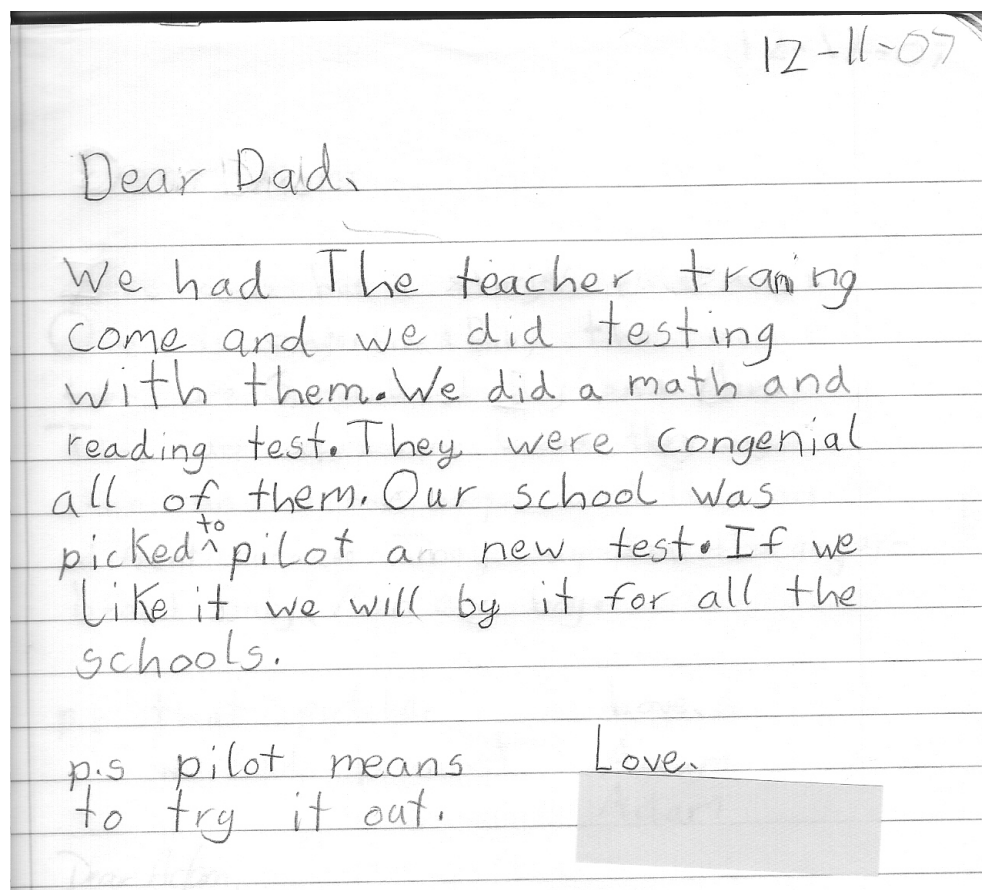 12-11-07
Dear Dad,
We had The teacher traning
come and we did testing
with them. We did a math and
reading test. They were congenial
all of them. Our school was
picked ^to pilot a new test. If we
like it we will by it for all the
schools.
p.s pilot means Love,
to try it out.